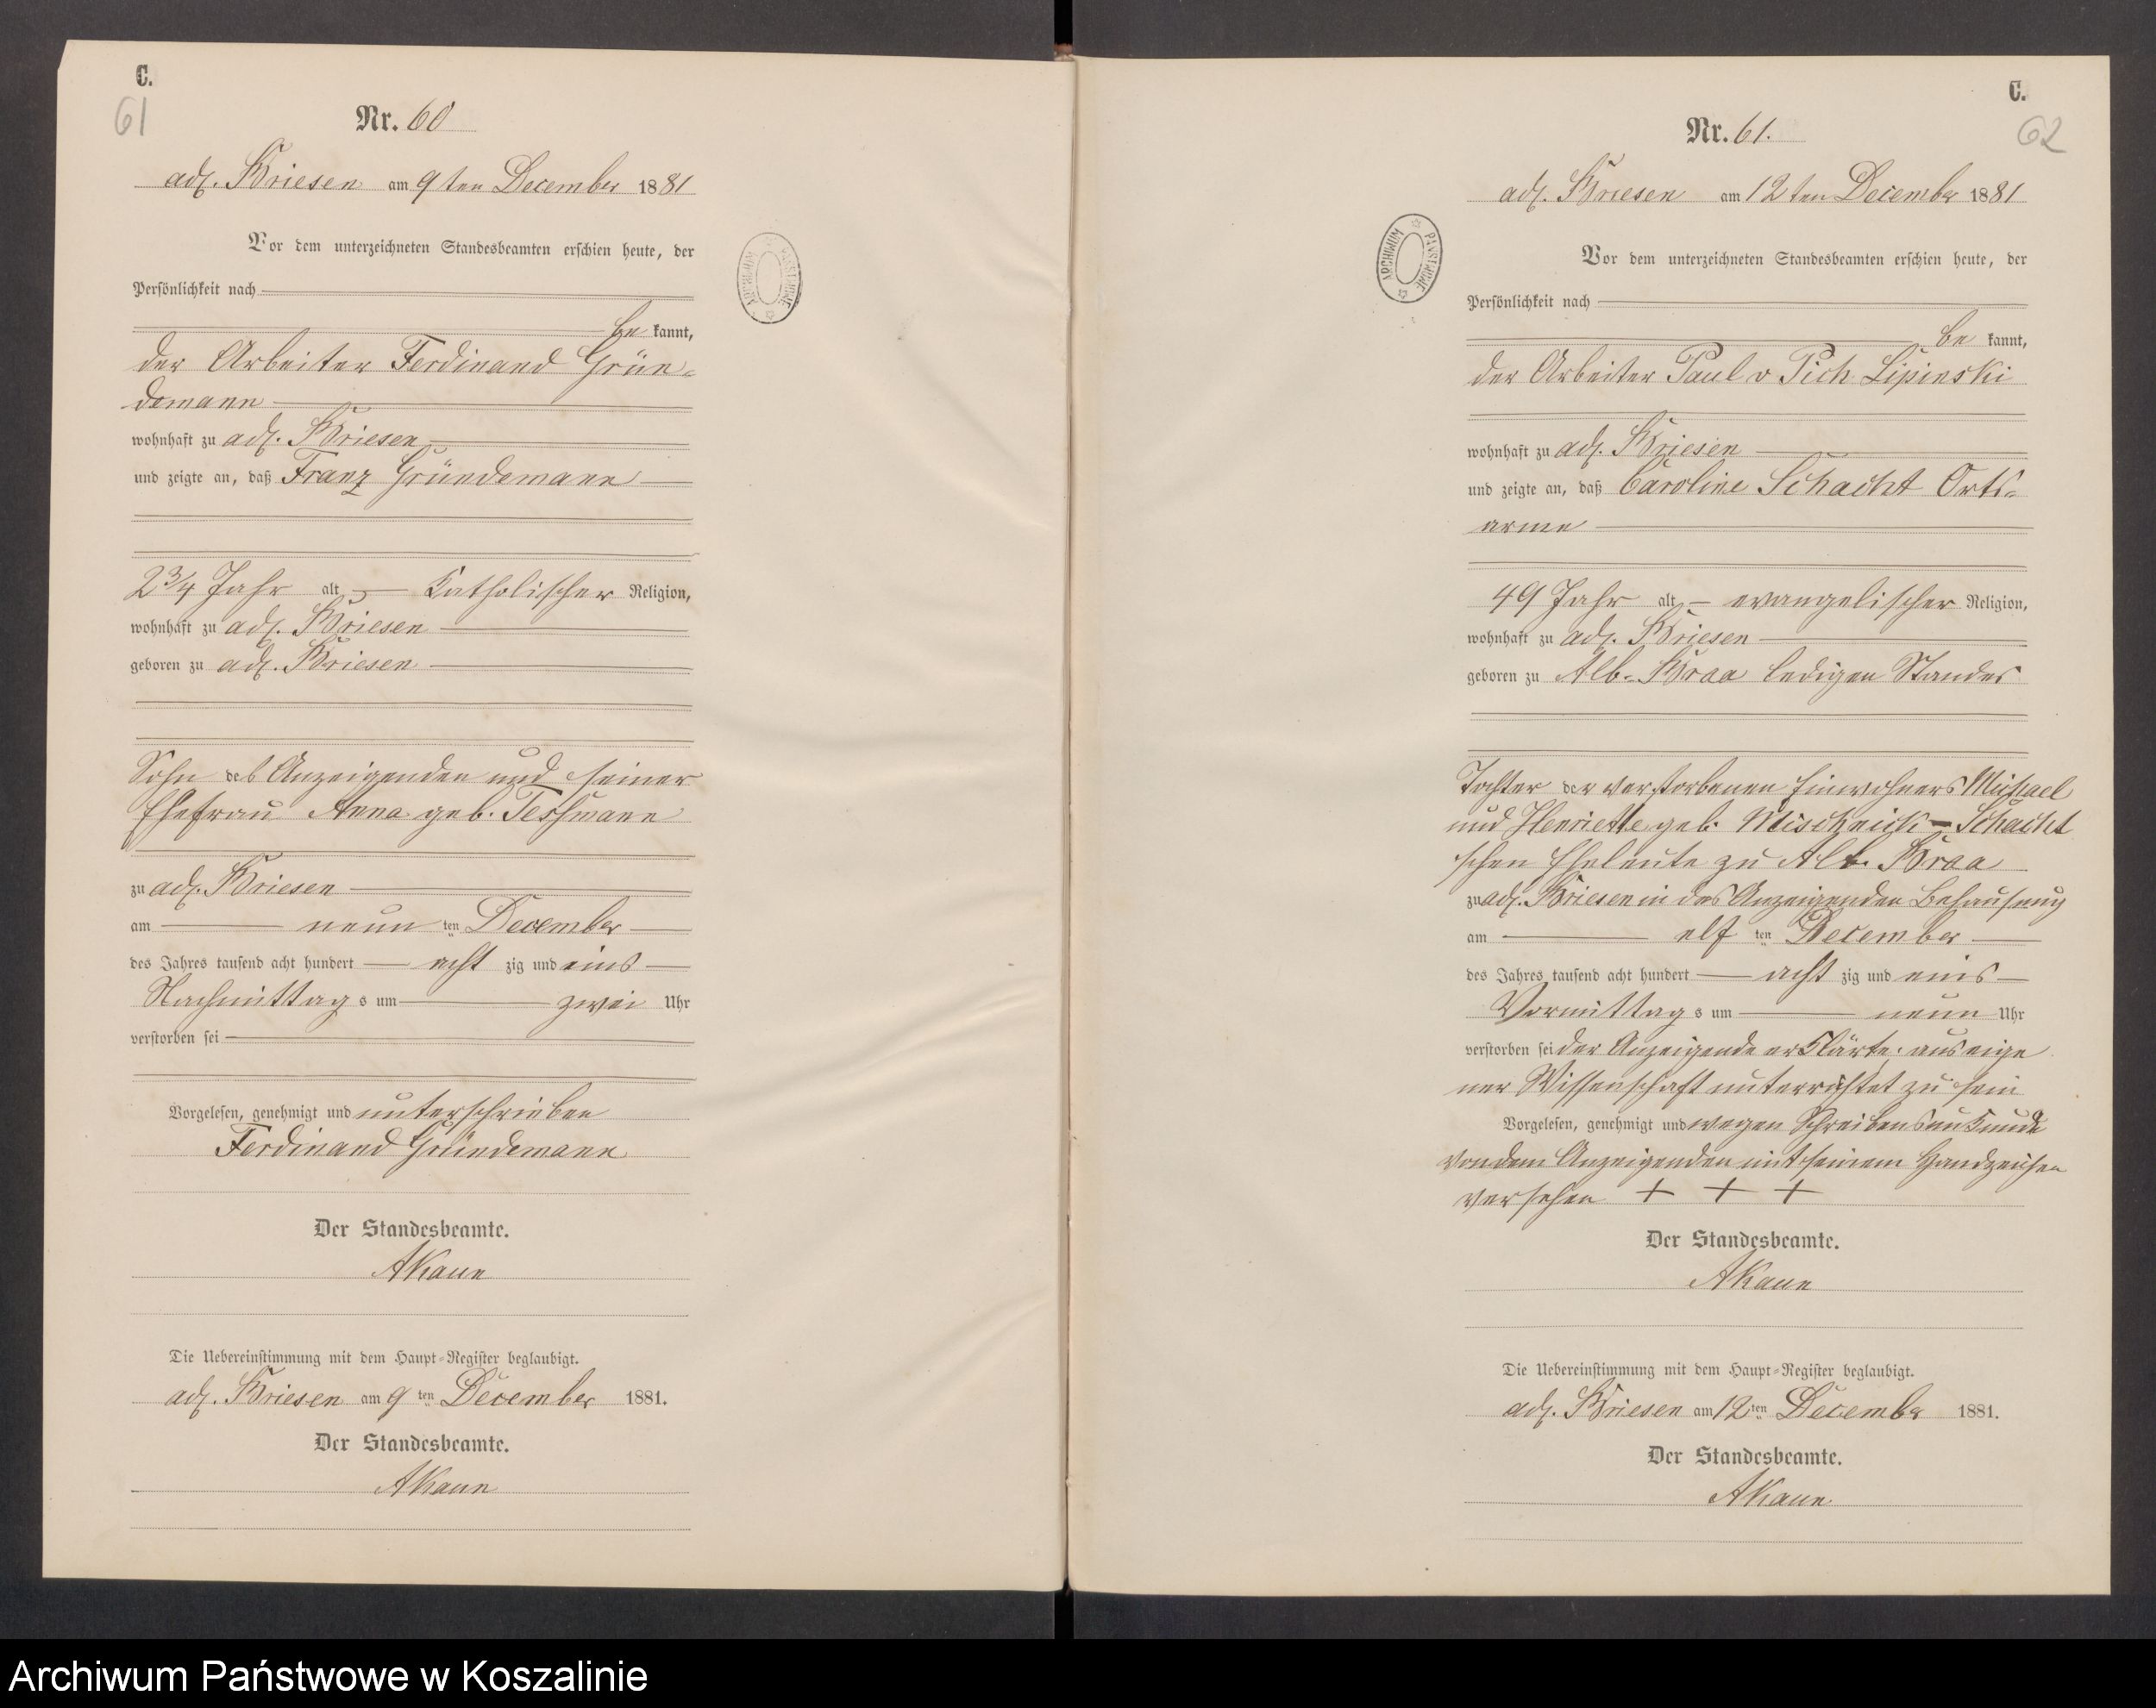 C.
61
Nr. 60
adl. Briesen am 9ten December 1881
Vor dem unterzeichneten Standesbeamten erschien heute, der
Persönlichkeit nach
be kannt,
der Arbeiter Ferdinand Grün-
demann
wohnhaft zu adl. Briesen
und zeigte an, daß Franz Gründemann
2 3/4 Jahr alt, Katholischer Religion,
wohnhaft zu adl. Briesen
geboren zu adl. Briesen
Sohn des Anzeigenden und seiner
Ehefrau Anna geb. Tessmann
zu adl. Briesen
am neun ten December
des Jahres tausend acht hundert acht zig und eins
Nachmittag s um zwei Uhr
verstorben sei
Vorgelesen, genehmigt und unterschrieben
Ferdinand Gründemann
Der Standesbeamte.
AKaun
Die Uebereinstimmung mit dem Haupt-Register beglaubigt.
adl. Briesen am 9 ten December 1881.
Der Standesbeamte.
AKaun
ARCHIWUM PAŃSTWOWE
C.
62
Nr. 61.
adl. Briesen am 12ten December 1881
Vor dem unterzeichneten Standesbeamten erschien heute, der
Persönlichkeit nach
be kannt,
der Arbeiter Paul v Pich Lipinski
wohnhaft zu adl. Briesen
und zeigte an, daß Caroline Schacht Orts-
arme
49 Jahr alt, evangelischer Religion,
wohnhaft zu adl. Briesen
geboren zu Alb-Braa ledigen Standes
Tochter der verstorbenen Einwohners Michael
und Henriette geb. Mischnick - Schacht
schen Eheleute zu Alb. Braa
zu adl. Briesen in des Anzeigenden Behausung
am elf ten December
des Jahres tausend acht hundert acht zig und eins
Vormittag s um neun Uhr
verstorben sei der Anzeigende erklärte, aus eige
ner Wissenschaft unterrichtet zu sein
Vorgelesen, genehmigt und wegen Schreibensunkunde
von dem Anzeigenden mit seinem Handzeichen
versehen + + +
Der Standesbeamte.
AKaun
Die Uebereinstimmung mit dem Haupt-Register beglaubigt.
adl. Briesen am 12 ten December 1881.
Der Standesbeamte.
AKaun
ARCHIWUM PAŃSTWOWE
Archiwum Państwowe w Koszalinie